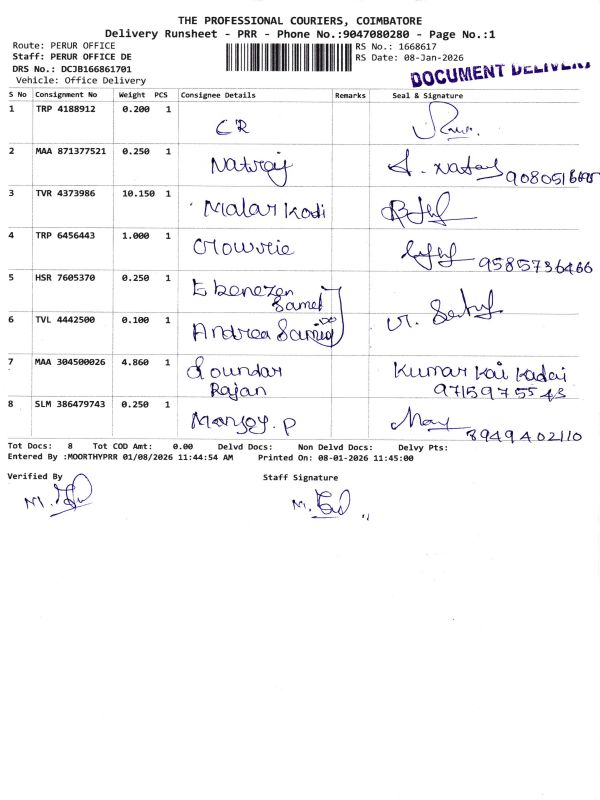 THE PROFESSIONAL COURIERS, COIMBATORE
Delivery Runsheet - PRR - Phone No.:9047080280 - Page No.:1
Route: PERUR OFFICE
RS No.: 1668617
Staff: PERUR OFFICE DE
RS Date: 08-Jan-2026
DRS No.: DCJB166861701
Vehicle: Office Delivery
DOCUMENT
S No Consignment No Weight PCS Consignee Details Remarks Seal & Signature
1 TRP 4188912 0.200 1 CR
2 MAA 871377521 0.250 1 Natraj
3 TVR 4373986 10.150 1 Malar Kodi
4 TRP 6456443 1.000 1
9585736466
5 HSR 7605370 0.250 1 Ebenezen
6 TVL 4442500 0.100 1 Andrea
7 MAA 304500026 4.860 1 Soundar Kumar Kai Kadai
Rajan 9715975543
8 SLM 386479743 0.250 1 Manjoy. P
8949402110
Tot Docs: 8 Tot COD Amt: 0.00 Delvd Docs: Non Delvd Docs: Delvy Pts:
Entered By :MOORTHYPRR 01/08/2026 11:44:54 AM Printed On: 08-01-2026 11:45:00
Verified By Staff Signature